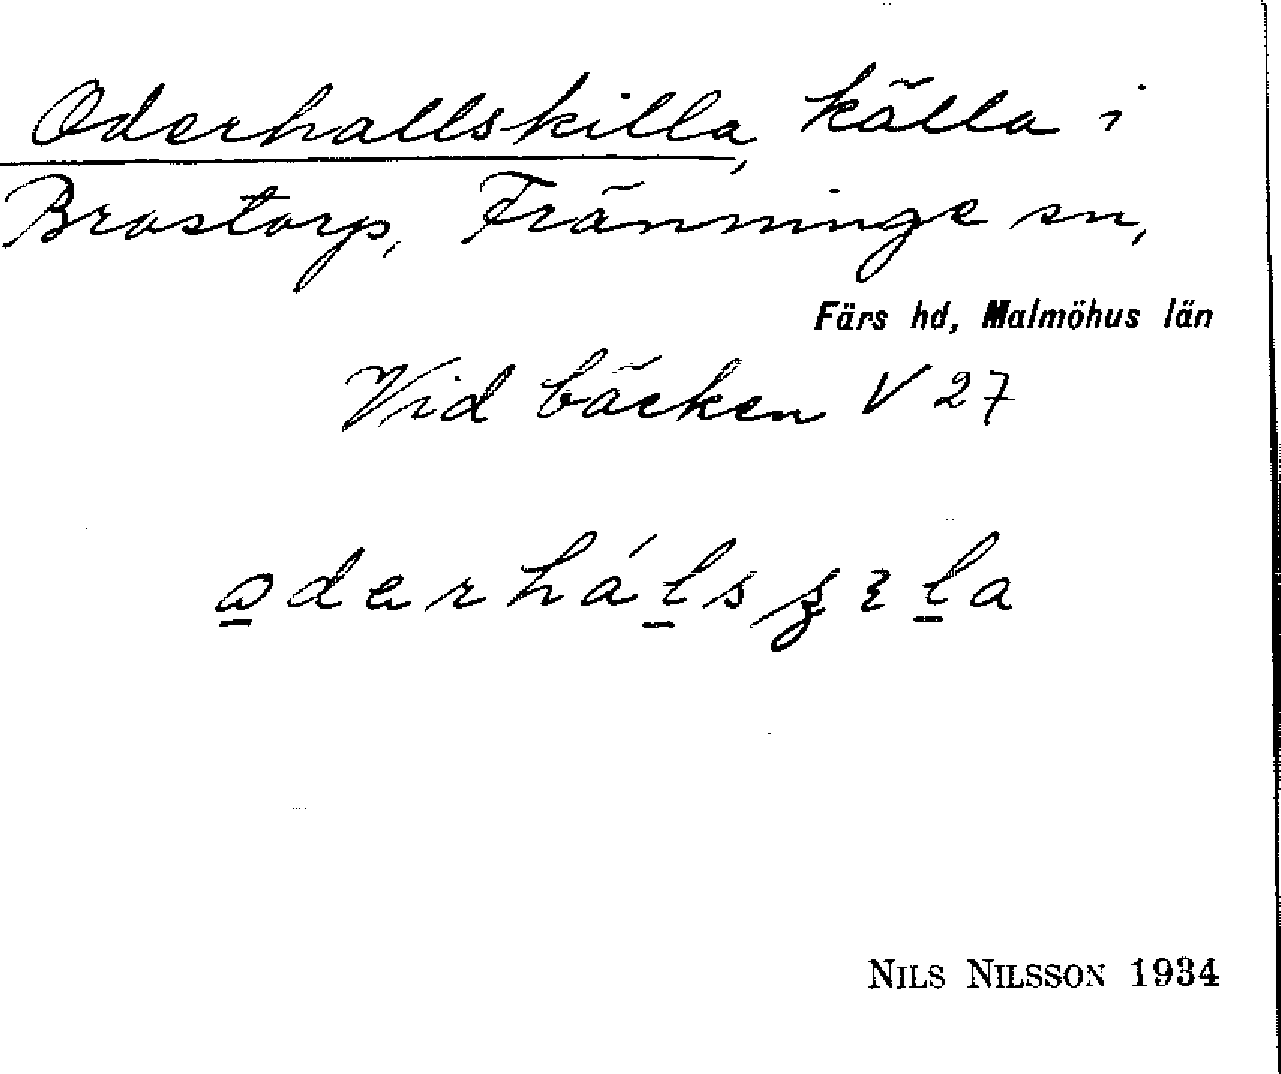 Oderhallskilla, källa i
Brostorp, Fränninge sn,
Färs hd, Malmöhus län
Vid bäcken V 27
NILS NILSSON 1934